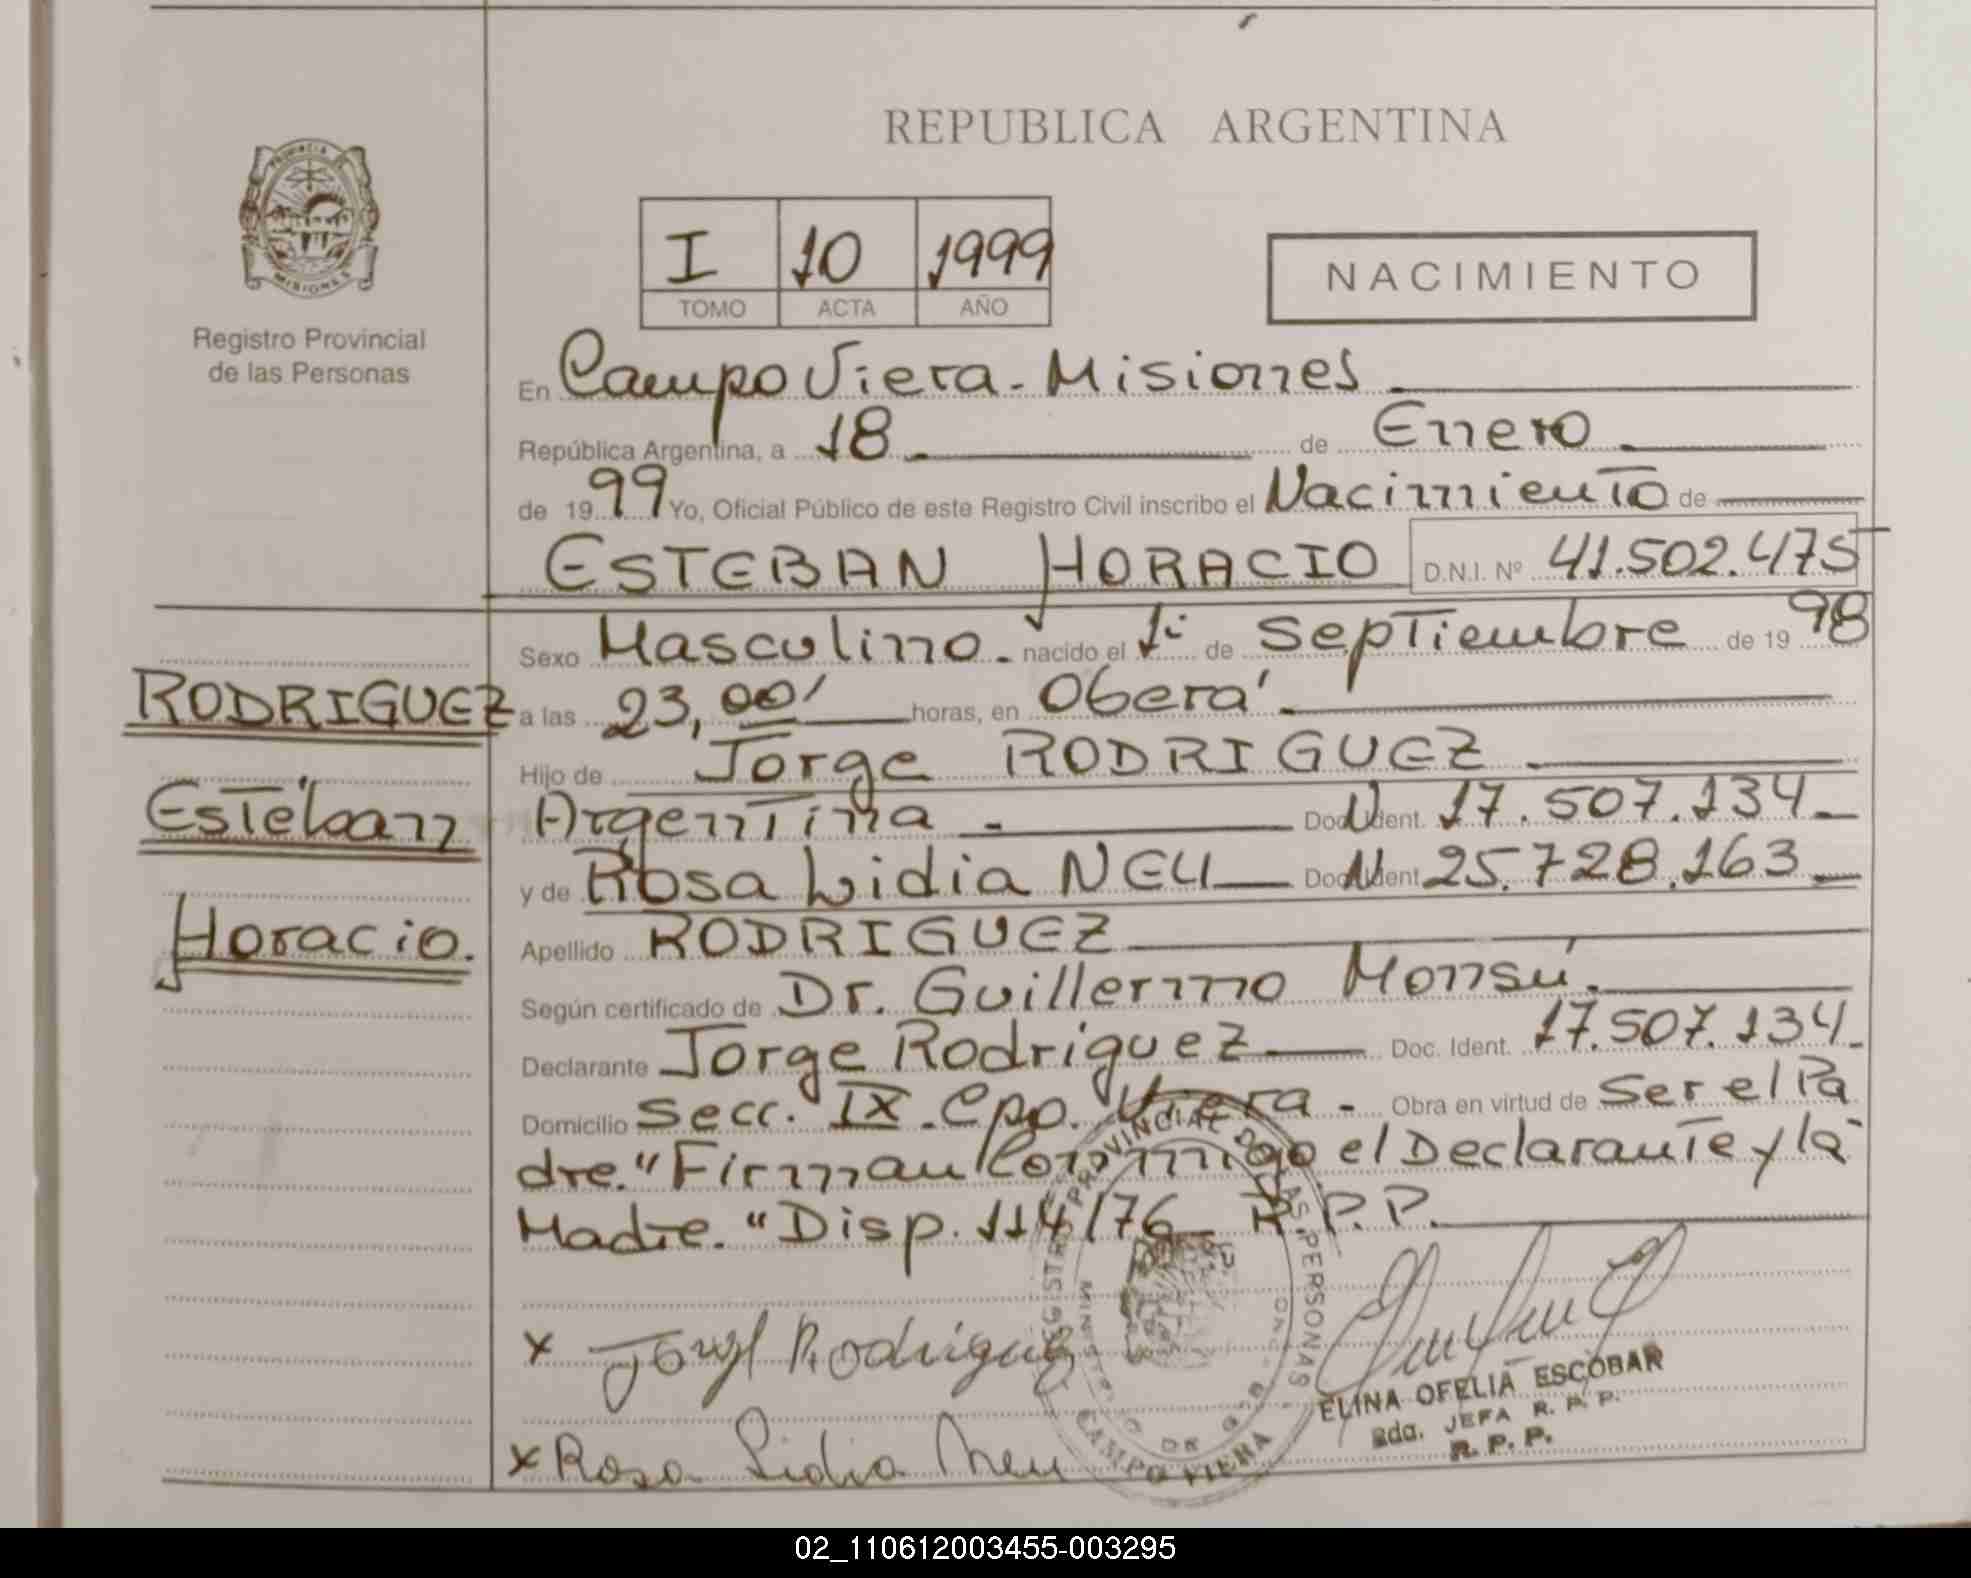 REPUBLICA ARGENTINA
PROVINCIA DE
MISIONES
Registro Provincial
de las Personas
I 10 1999
TOMO ACTA AÑO
NACIMIENTO
En Campo Viera - Misiones
República Argentina, a 18 de Enero
de 1999 Yo, Oficial Público de este Registro Civil inscribo el Nacimiento de
ESTEBAN HORACIO D.N.I. Nº 41.502.475
Sexo Masculino. nacido el 1º de Septiembre de 1998
a las 23,00' horas, en Oberá
Hijo de Jorge RODRIGUEZ
Argentina - Doc. Ident. 17.507.134
y de Rosa Lidia NEU Doc. Ident. 25.728.163
Apellido RODRIGUEZ
Según certificado de Dr. Guillermo Monsú.
Declarante Jorge Rodriguez Doc. Ident. 17.507.134
Domicilio Secc. IX - Cpo. Viera - Obra en virtud de Ser el Pa
dre. "Firman Conmigo el Declarante y la
Madre. "Disp. 114/76 R.P.P.
RODRIGUEZ
Esteban
Horacio.
x Jorge Rodriguez
x Rosa Lidia Neu
REGISTRO PROVINCIAL DE LAS PERSONAS
CAMPO VIERA
ELINA OFELIA ESCOBAR
2da. JEFA R. P. P.
R. P. P.
02_110612003455-003295